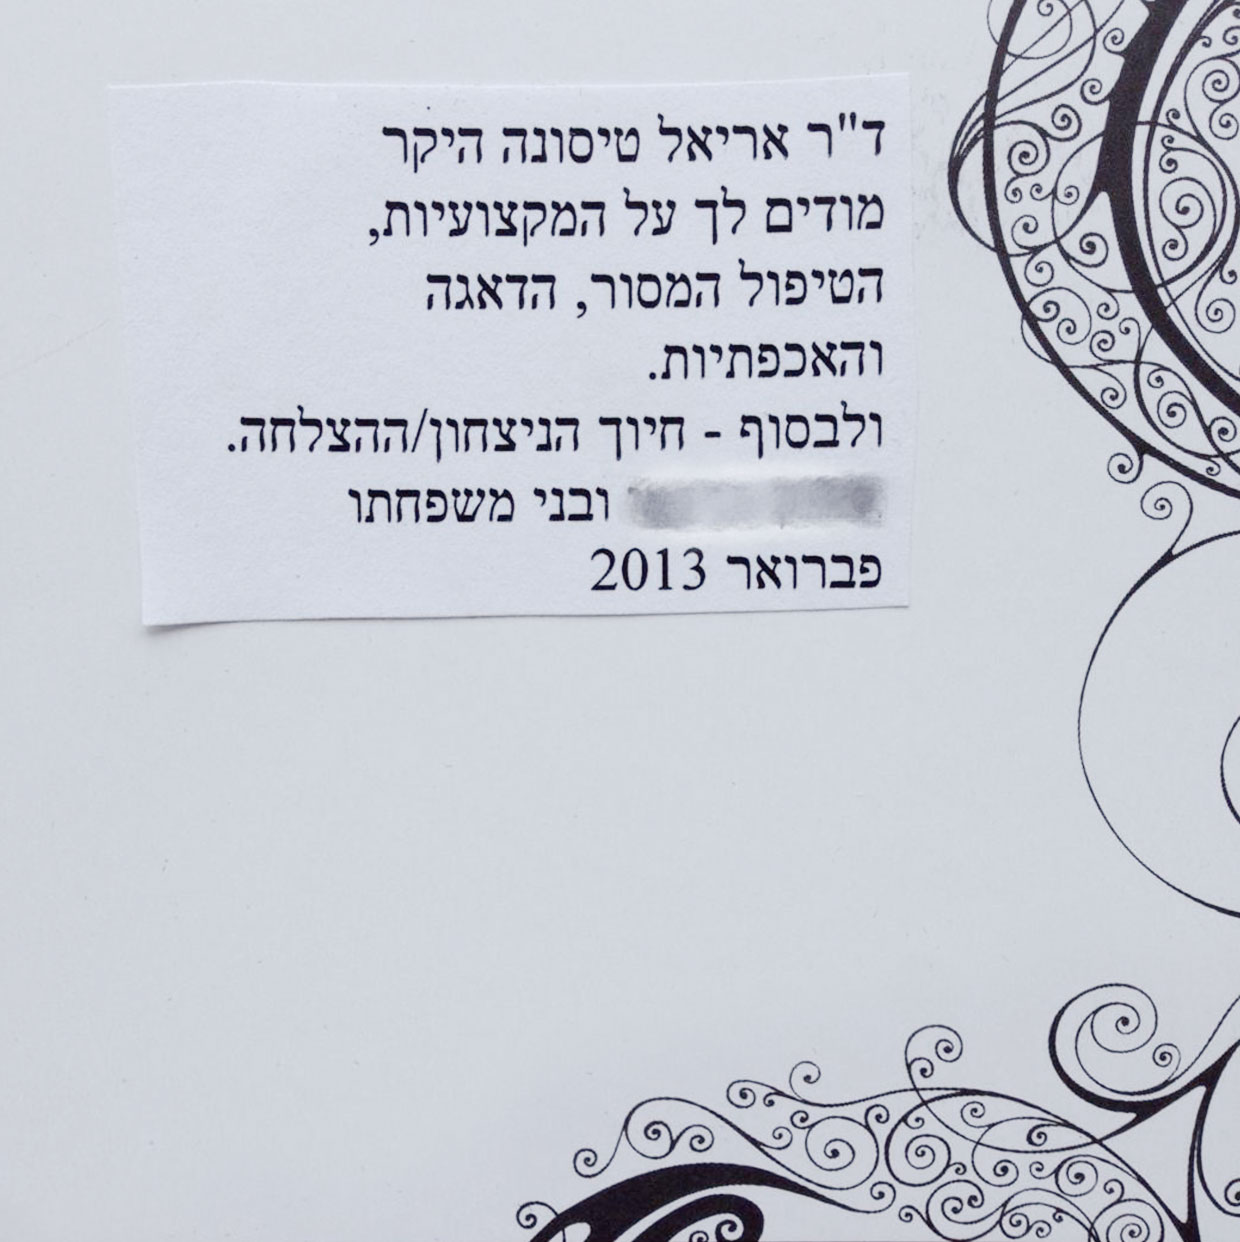 ד"ר אריאל טיסונה היקר
מודים לך על המקצועיות,
הטיפול המסור, הדאגה
והאכפתיות.
ולבסוף - חיוך הניצחון/ההצלחה.
ובני משפחתו
פברואר 2013